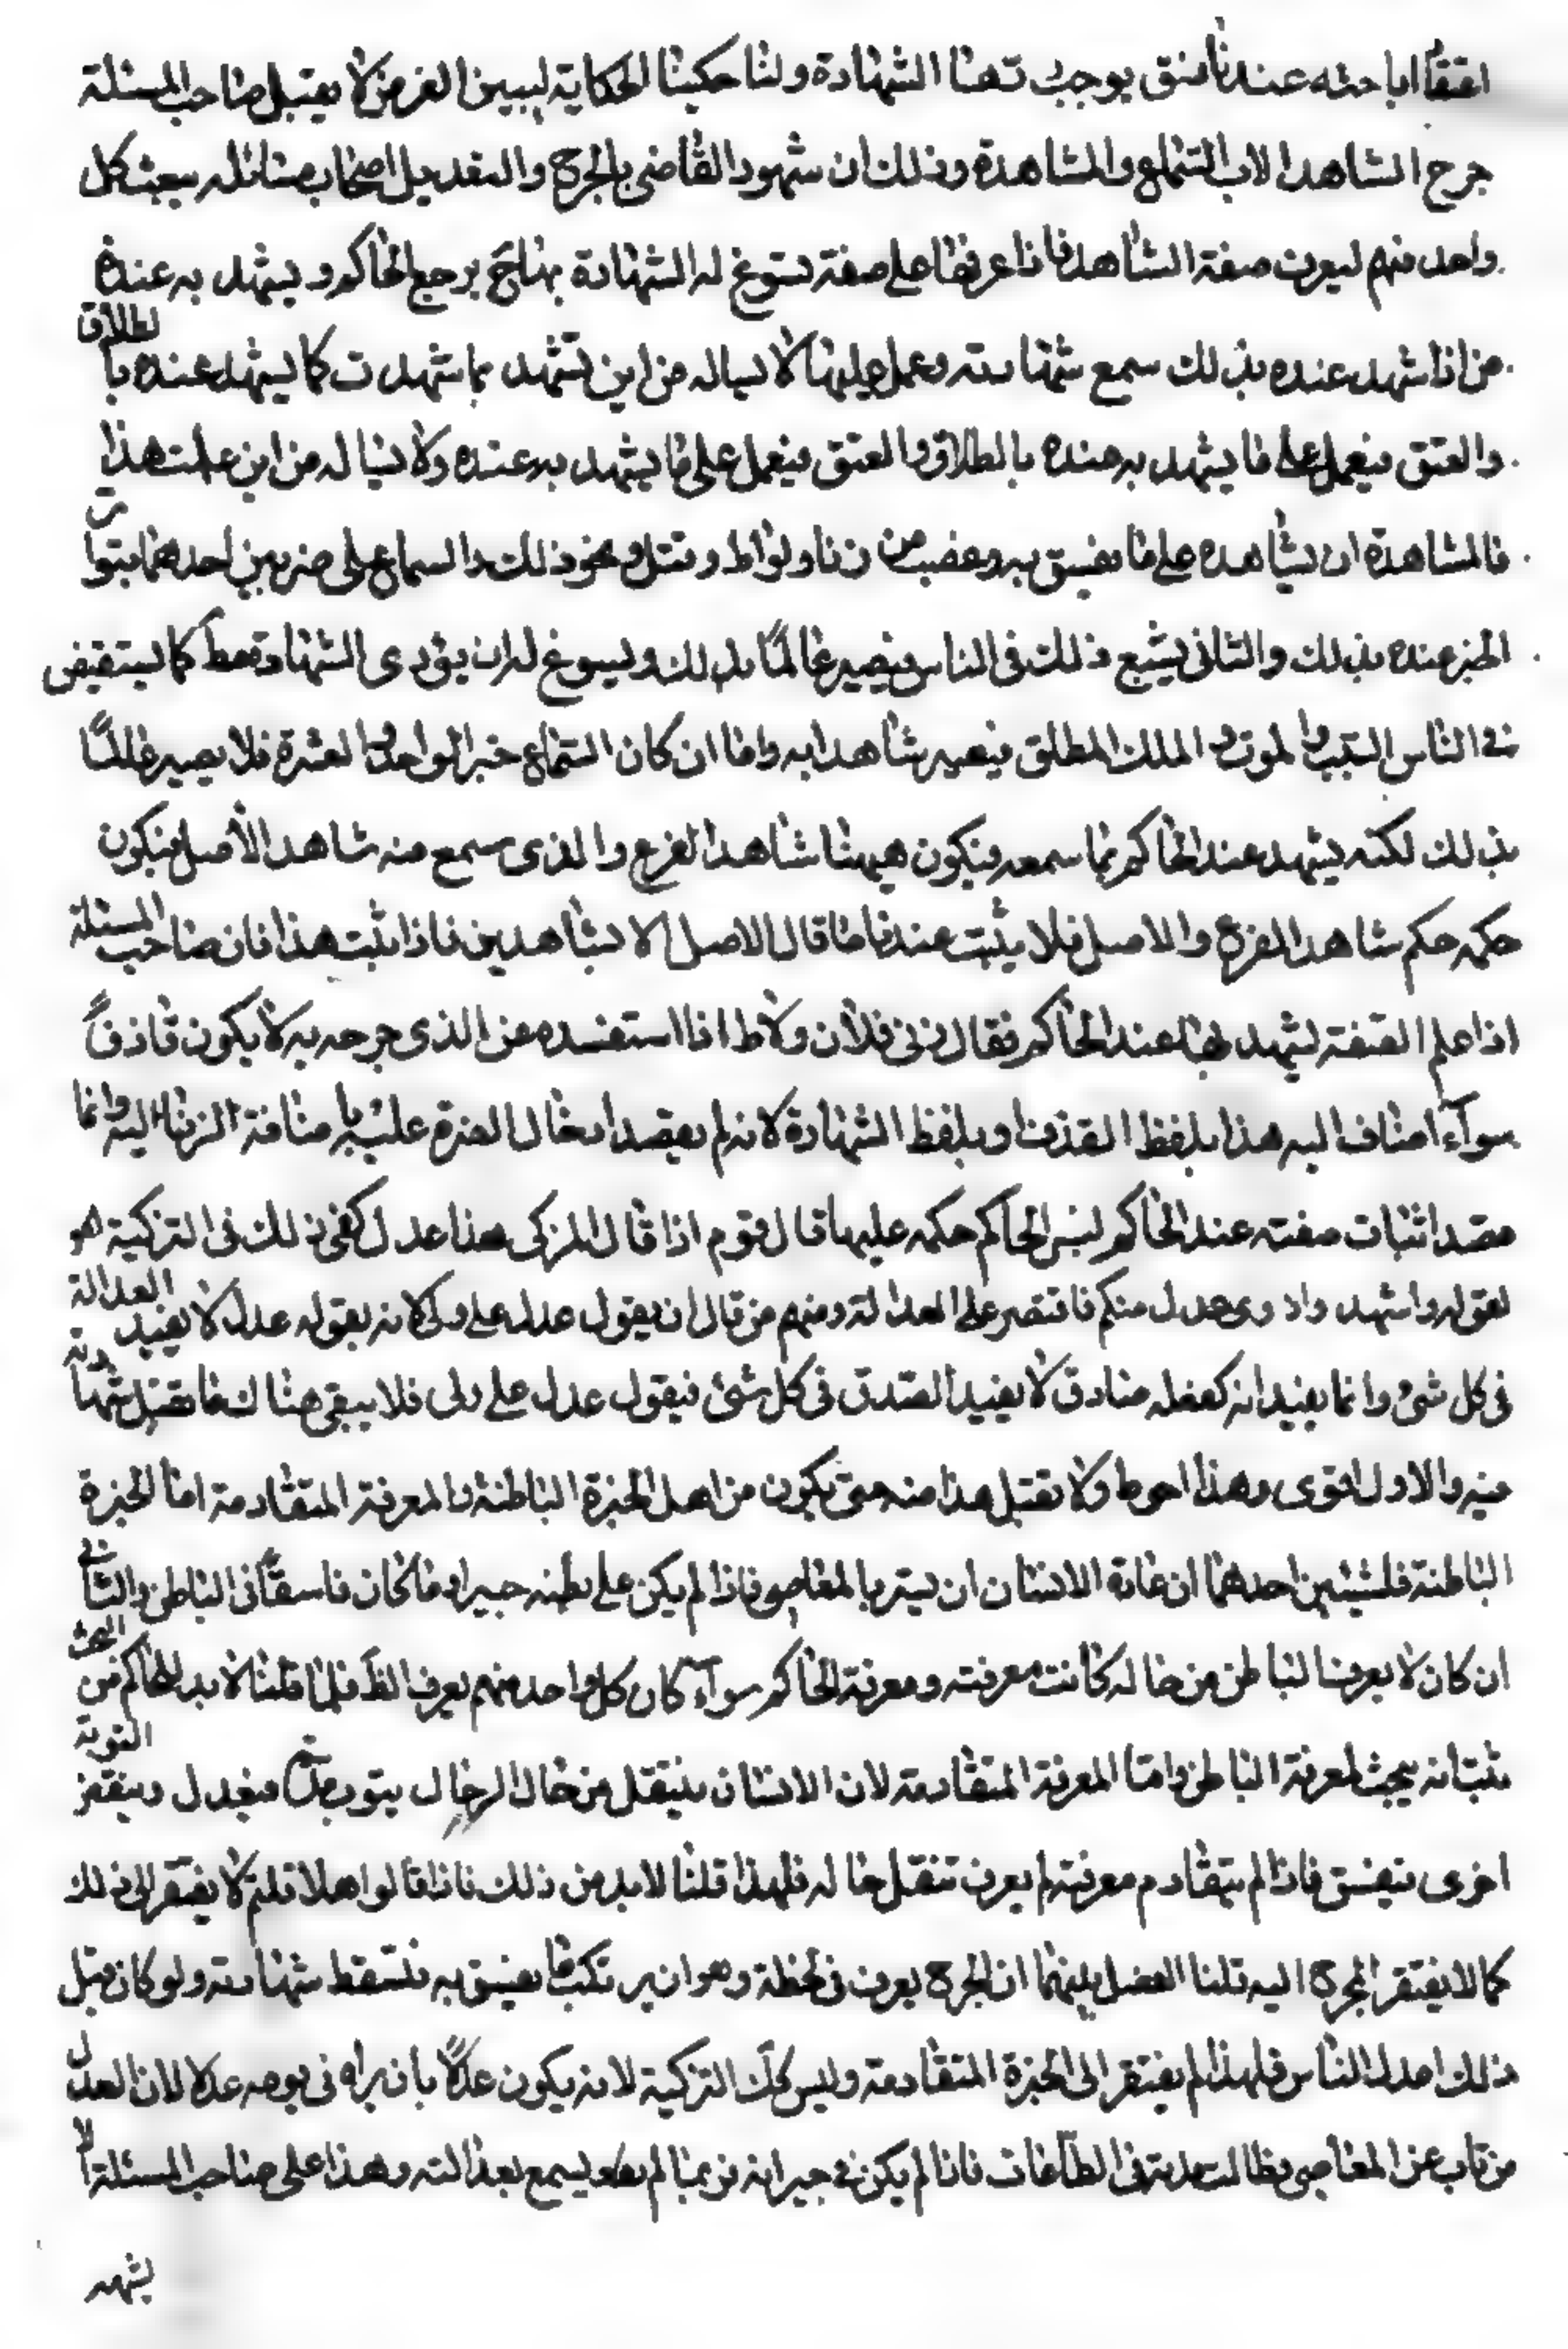 اعتقادا اباحته عندنا فسق يوجب تهنا الشهادة ولنا حكينا الحكاية ليبين الغرض لا يقبل صاحب المسئلة
جرح الشاهد الا بالسماع والمشاهدة وذلك ان شهود القاضى بالجرح والتعديل اصحاب مسائله يبعث كل
واحد منهم ليعرف صفة الشاهد فاذا عرفها على صفة تسوغ له الشهادة بهنا حتى يرجع الحاكم و يشهد به عنده
من اذا شهد عنده بذلك سمع شهادته وعمل عليها لا يساله من اين تشهد بما شهدت كما يشهد عنده بالطلاق
والعتق فيعمل على ما يشهد به عنده بالطلاق والعتق فيعمل على ما يشهد به عنده ولا يساله من اين علمت هذا
فالمشاهدة ان يشاهده على ما يفسق به من زنا ولواط و قتل و نحو ذلك والسماع على ضربين احدهما بتواتر
الخبر عنده بذلك والثانى يشيع ذلك فى الناس فيصير عالما بذلك ويسوغ له ان يؤدى الشهادة مطلقا كما يستفيض
فى الناس النسب والموت والملك المطلق فيصير شاهدا به واما ان كان السماع خبر الواحد والعشرة فلا يصير عالما
بذلك لكنه يشهد عند الحاكم بما سمعه فيكون هيهنا شاهد الفرع والذى سمع منه شاهد الأصل فيكون
حكمه حكم شاهد الفرع والاصل فلا يثبت عندنا ما قال الاصل الا بشاهدين فاذا ثبت هذا فان صاحب المسئلة
اذا علم الصفة ليشهد بها عند الحاكم فقال زنى فلان ولاط اذا استفسره عن الذى جرحه به لا يكون قاذفاً
سواء اضاف اليه هذا بلفظ القذف او بلفظ الشهادة لانه لم يقصد ادخال المعرة عليه باضافة الزنا اليه وانما
قصد اثبات صفته عند الحاكم ليبنى الحاكم حكمه عليها قال قوم اذا قال المزكى هذا عدل كفى ذلك فى التزكية هو
لقوله واشهدوا ذوى عدل منكم فاقتصر على العدالة ومنهم من قال ان يقول عدل على ولى لانه بقوله عدل لا يفيد العدالة
فى كل شئ وانما يفيد انه كقوله صادق لا يفيد الصدق فى كل شئ فيقول عدل على ولى فلا يبقى هناك ما تقبل شهادته
فيه والاول اقوى وهذا احوط ولا تقبل هذا منه حتى يكون من اهل الخبرة الباطنة والمعرفة المتقادمة اما الخبرة
الباطنة فلشيئين احدهما ان عادة الانسان ان يستر بالمعاصى فاذا لم يكن على بطنه خبيرا ربما كان فاسقا فى الباطن والثانى
ان كان لا يعرف الباطن من حاله كانت معرفته ومعرفة الحاكم سواء كان كل واحد منهم يعرف الظاهر فلما قلنا لا بد للحاكم من البحث
ثبت انه يبحث لمعرفة الباطن واما المعرفة المتقادمة لان الانسان ينتقل من حال الى حال يتوب فيعدل وينقض التوبة
اخرى فيفسق فاذا لم يتقادم معرفته لم يعرف تنقل حاله فلهذا قلنا لا بد من ذلك فاذا قالوا هلا قلتم لا يفتقر الى ذلك
كما لا يفتقر الجرح اليه قلنا الفصل بينهما ان الجرح يعرف فى لحظة وهو ان يرتكب ما يفسق به فتسقط شهادته ولو كان قبل
ذلك اعدل الناس فلهذا لم يفتقر الى الخبرة المتقادمة وليس كك التزكية لانه يكون عدلا بان يراه فى يومه عدلا لان العدل
من تاب عن المعاصى وطالت مدته فى الطاعات فاذا لم يكن فى جيرانه فربما لم يسمع بعدالته وهذا على صاحب المسئلة الا
يشهد